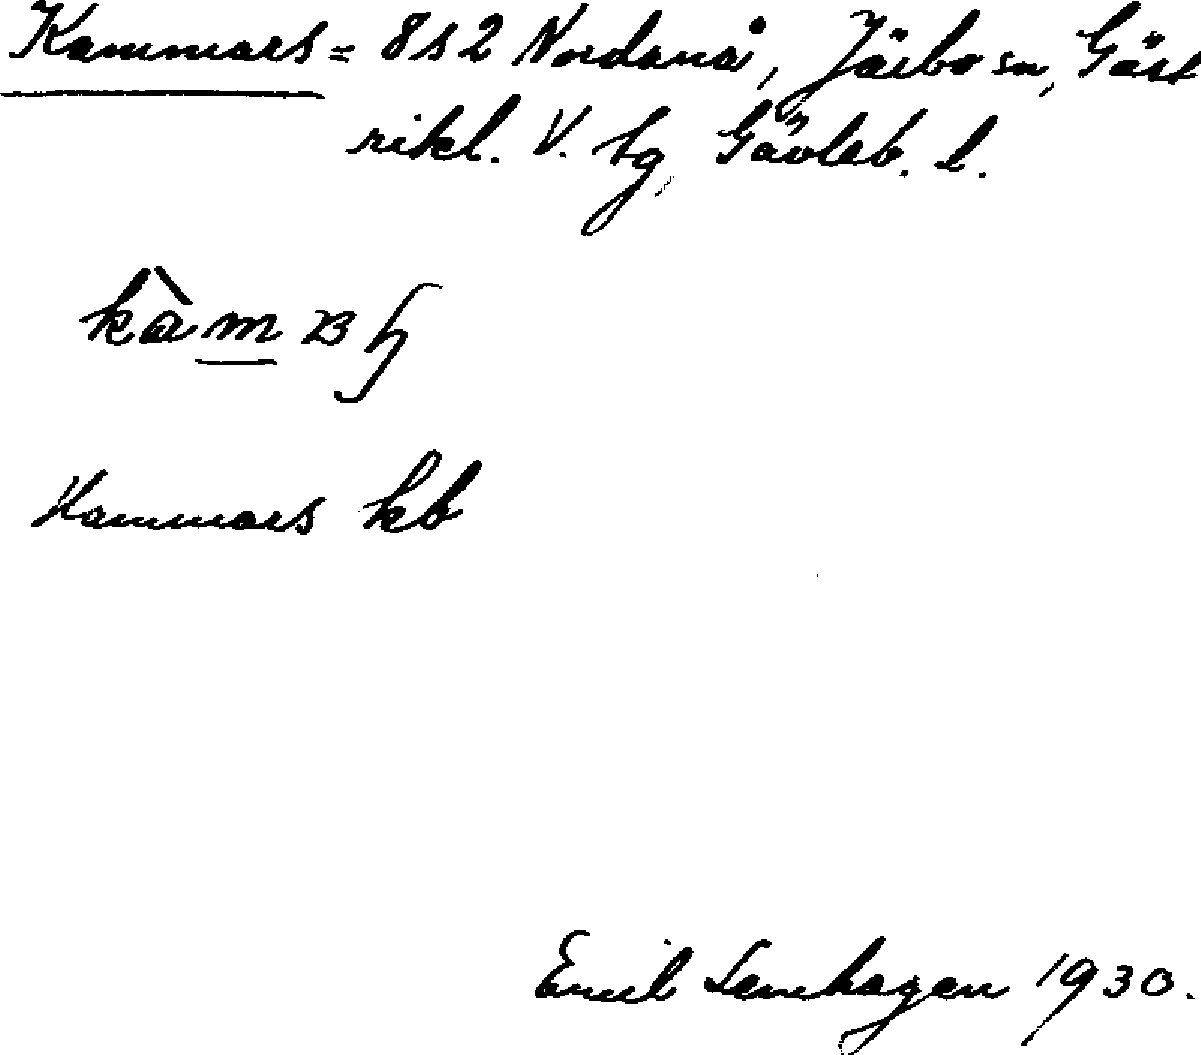 Kammars = 8s2 Nordanå, Järbo sn, Gäst
rikl. V. tg, Gävleb. l.
Hammars kb
Emil Lenhagen 1930.